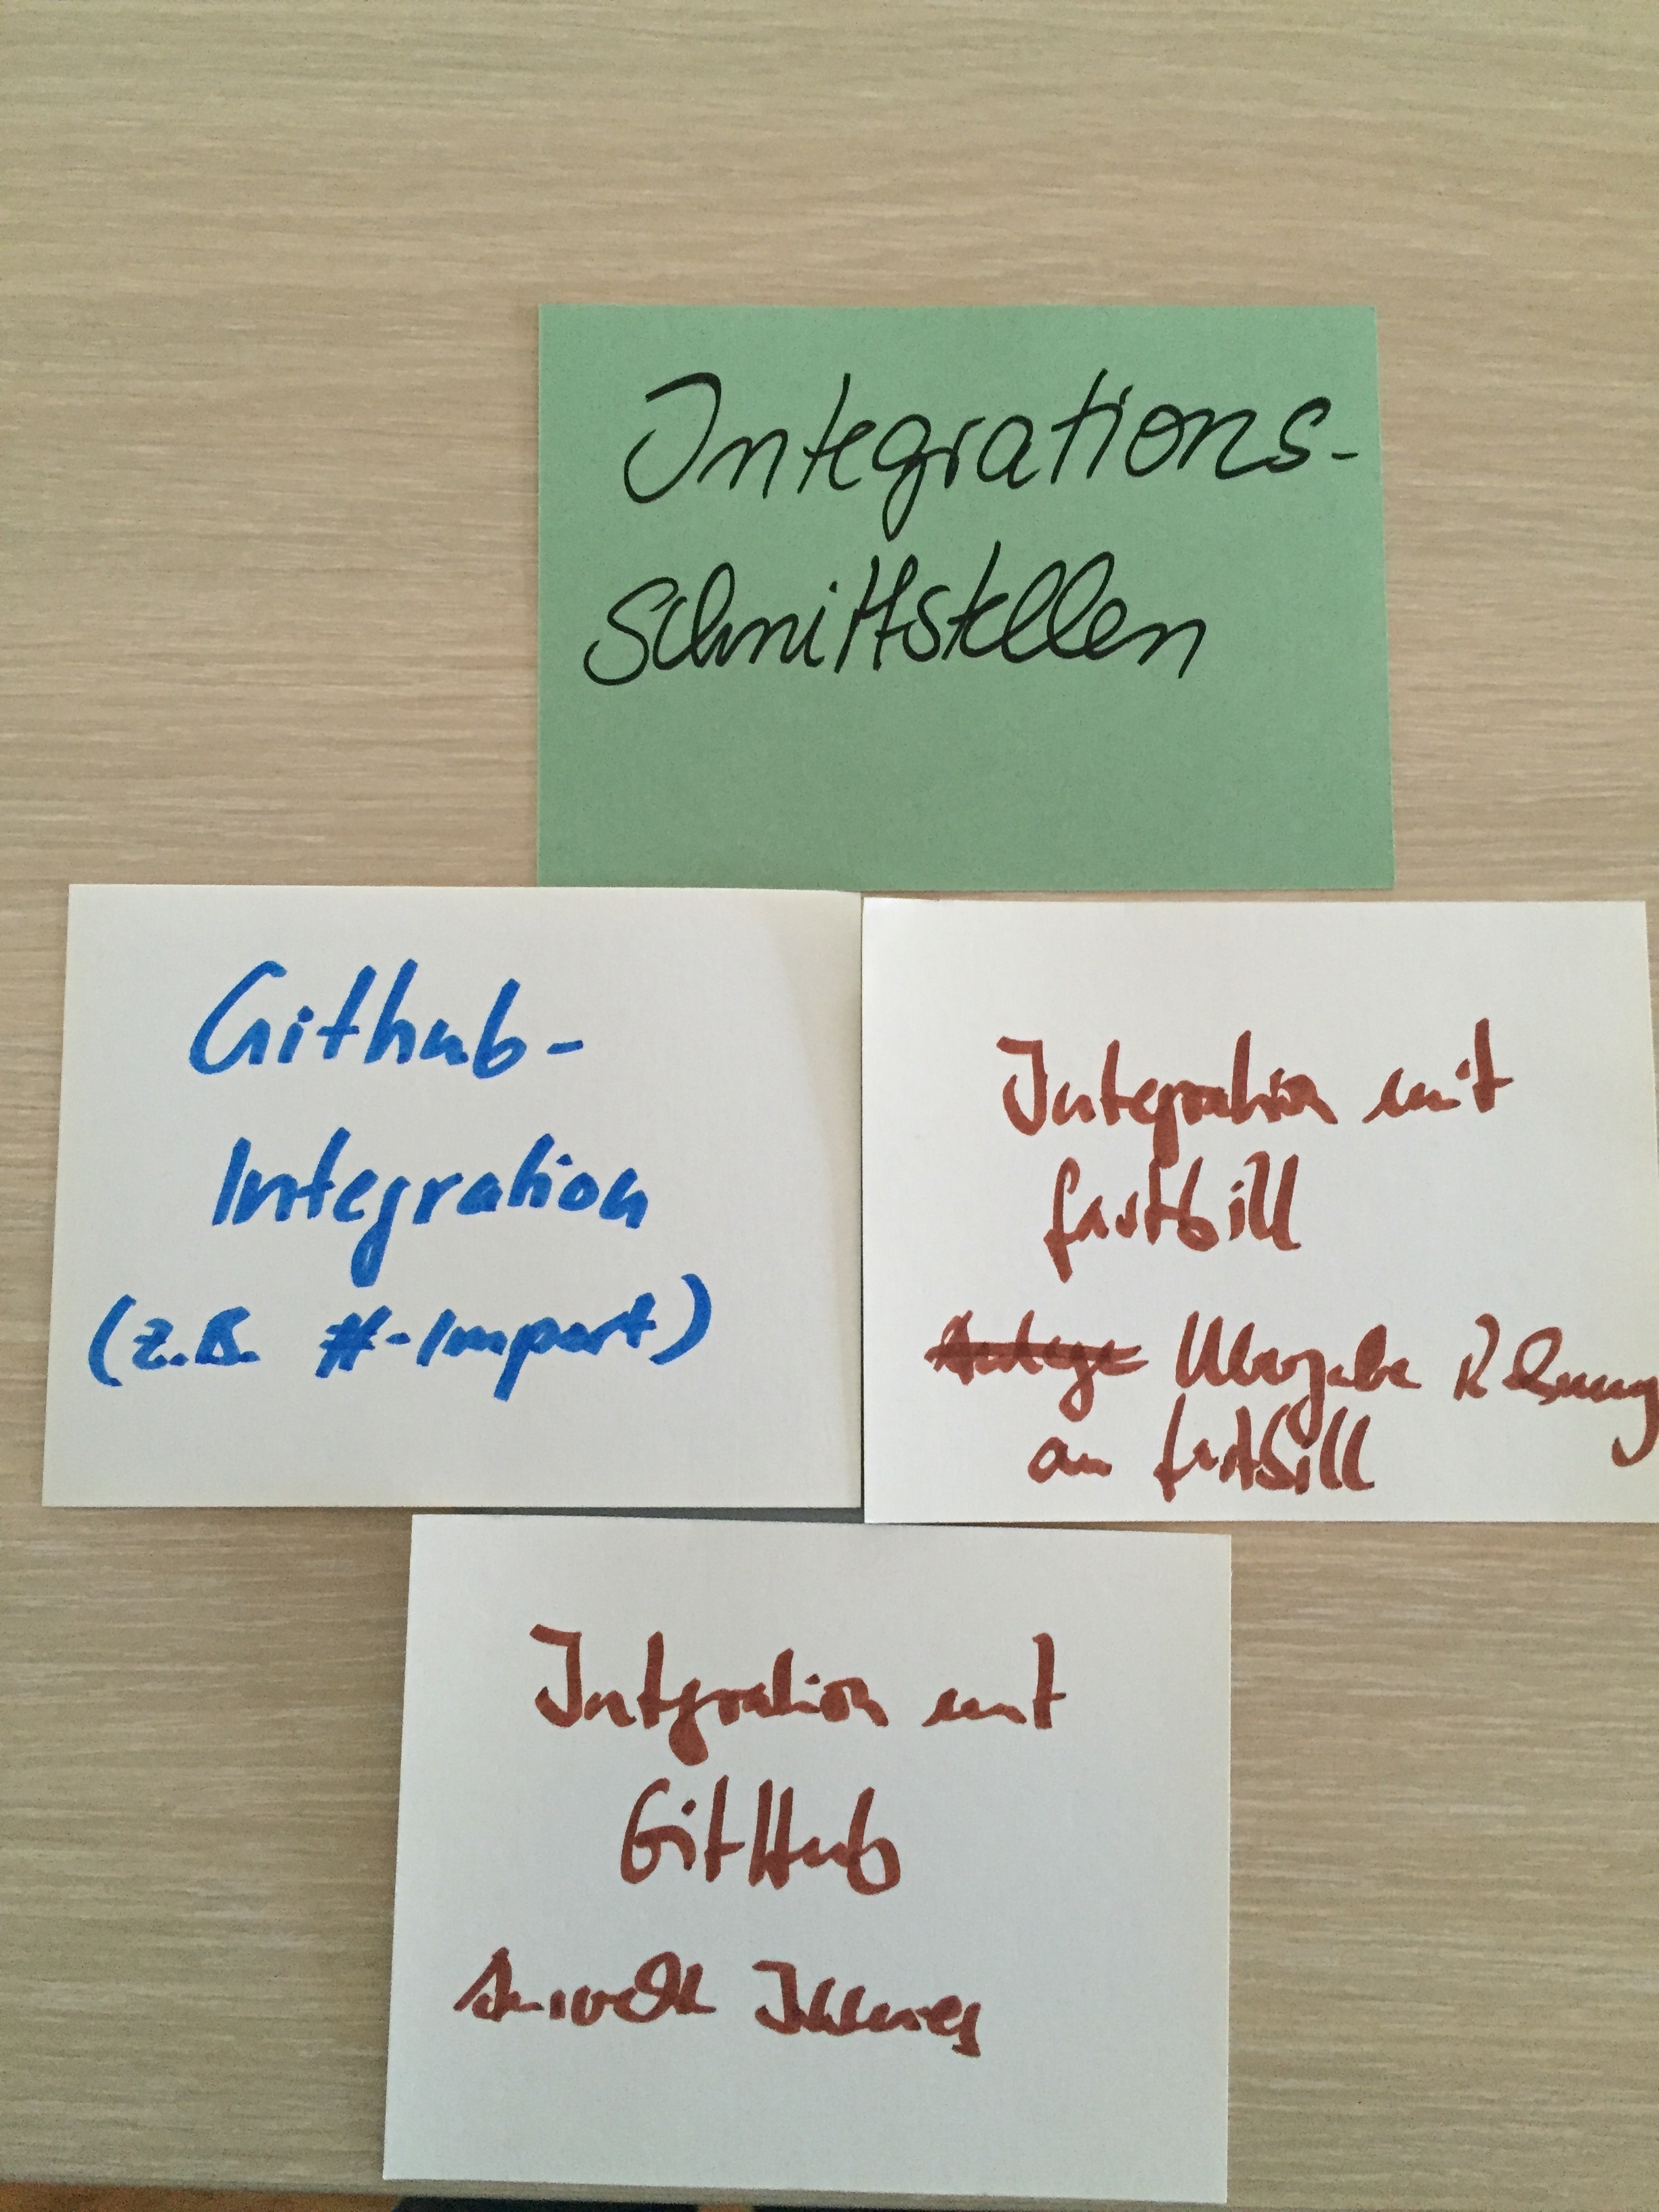 Integrations-
schnittstellen
Github-
Integration
(z.B. #-Import)
Integration mit
fastbill
Übergabe
an fastbill
Integration mit
GitHub